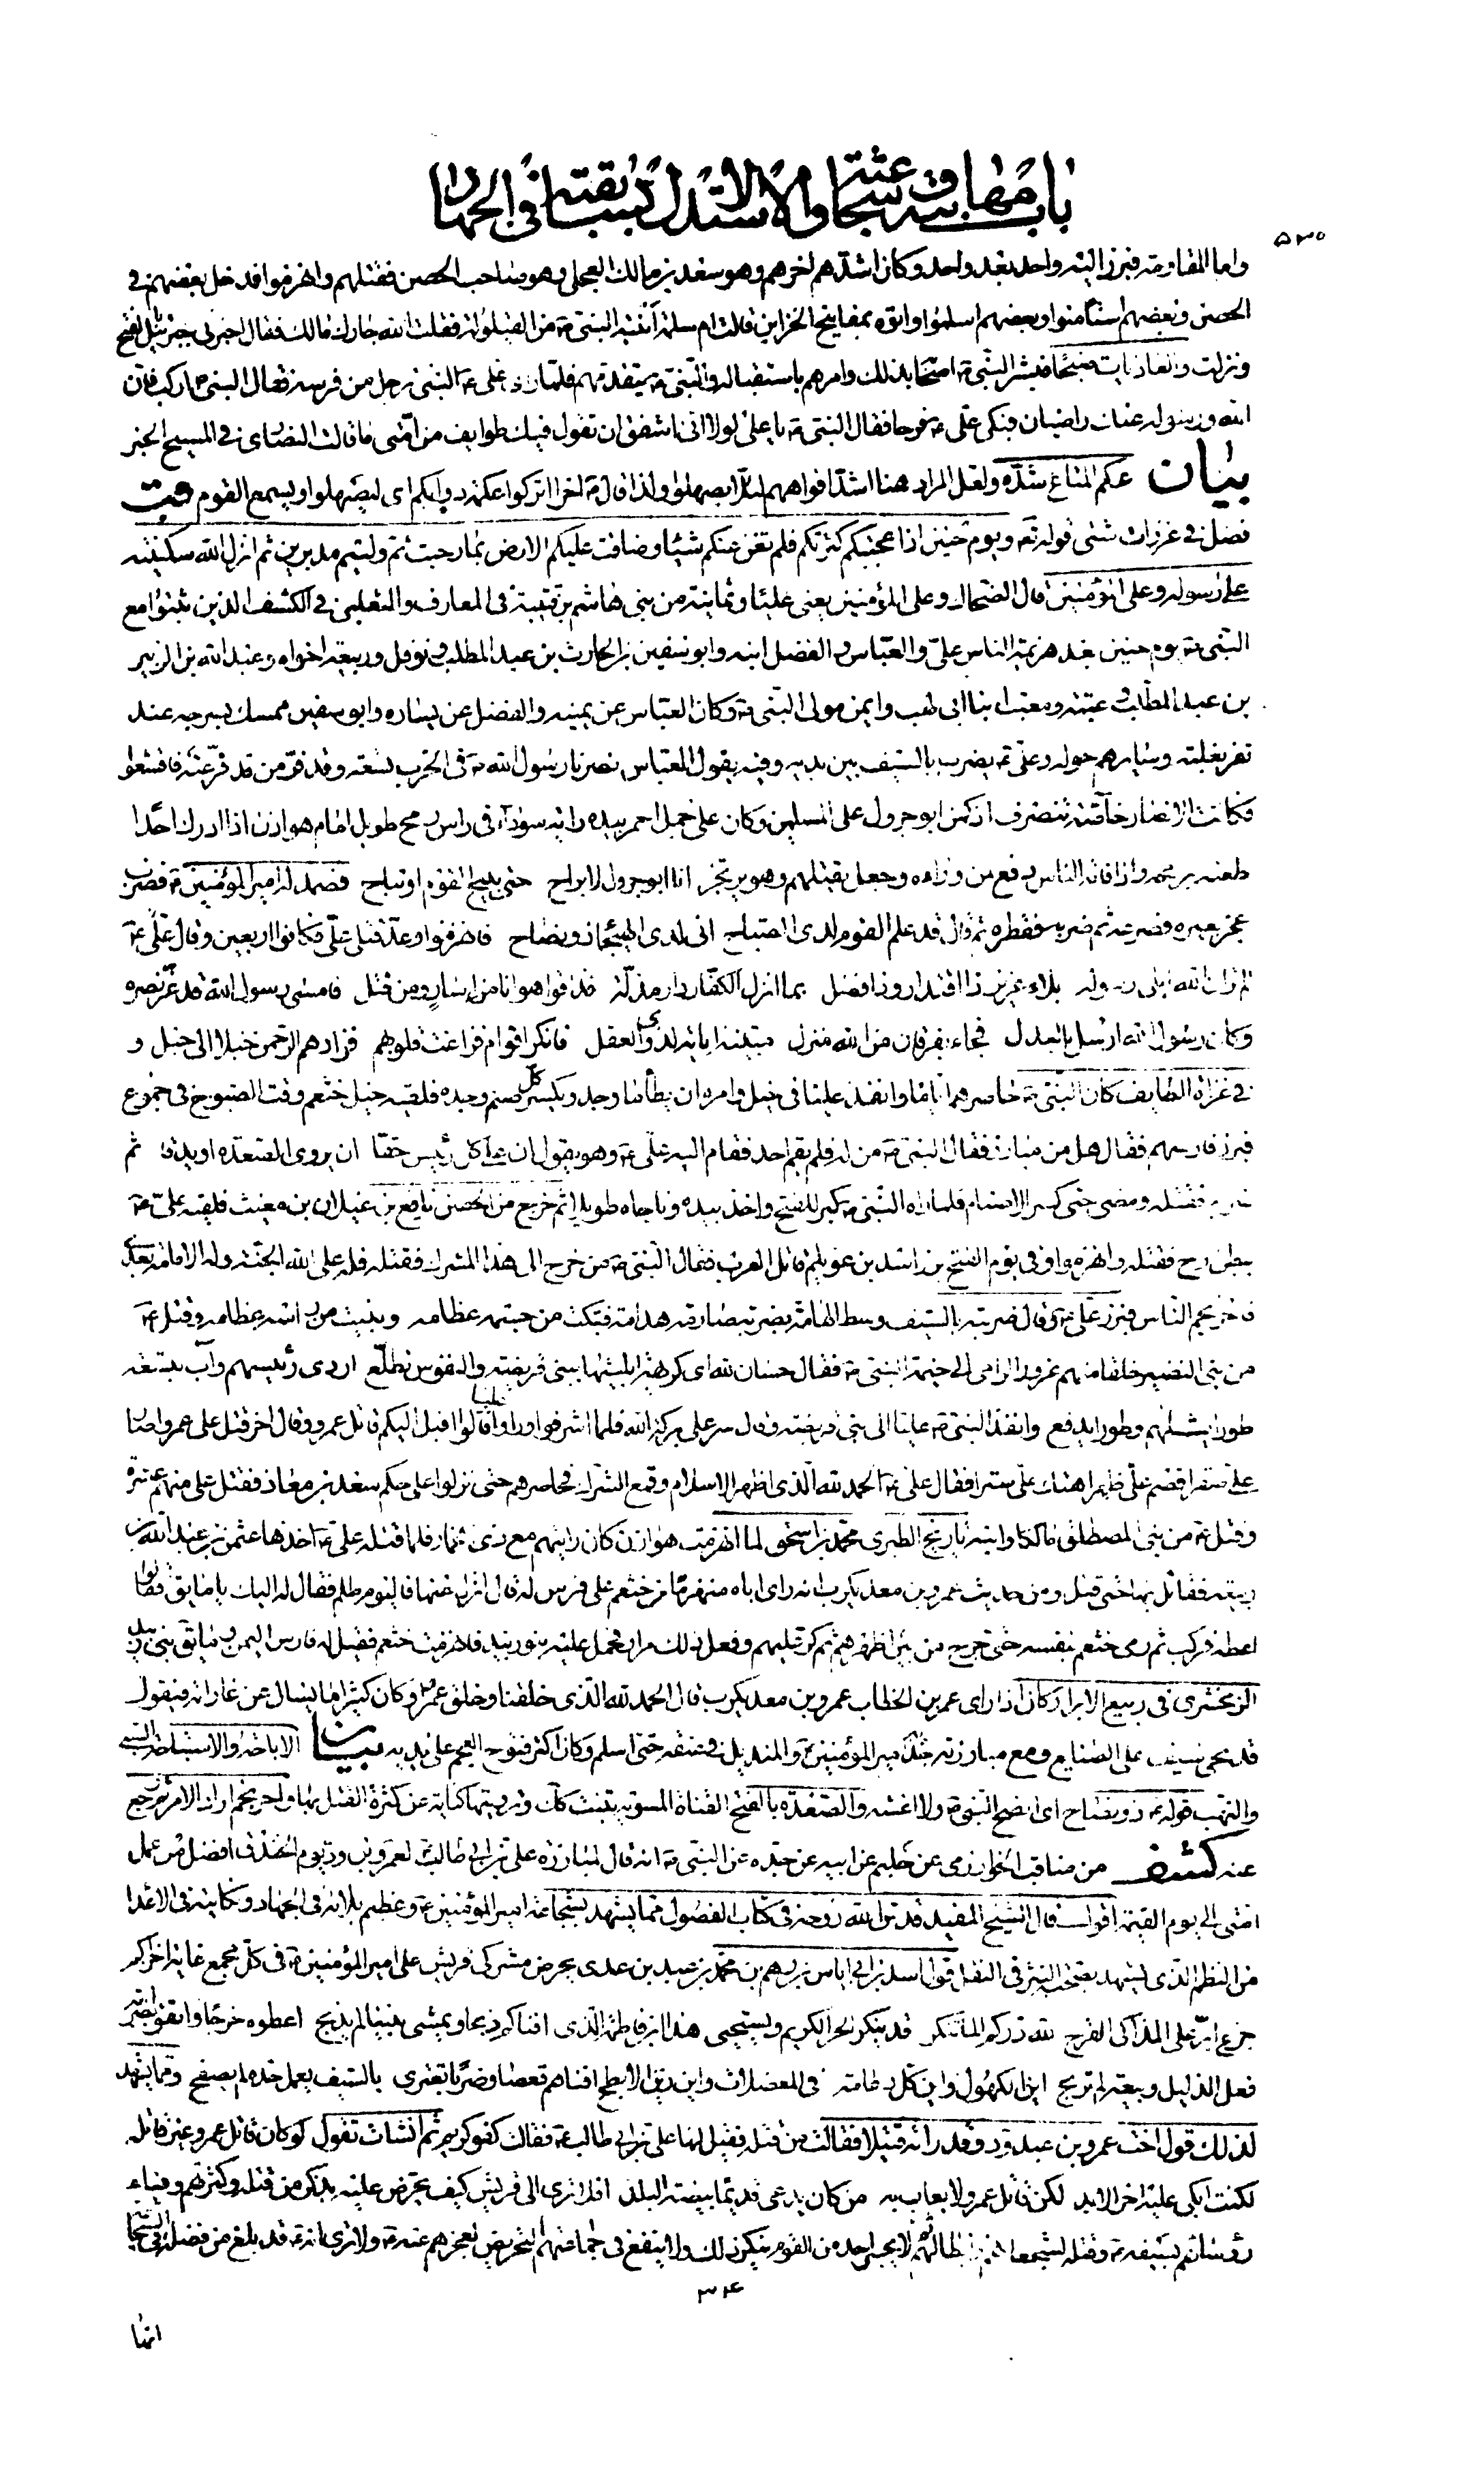 باب مهابته وشجاعته والاستدلال بسابقته في الجهاد
٥٣٥
واما المقاومة فبرز اليه واحد بعد واحد وكان اشدهم اخرهم وهو سعد بن مالك العجلي وهو صاحب الحصن فقتلهم وانهزموا فدخل بعضهم في
الحصن وبعضهم استأمنوا وبعضهم اسلموا واتوه بمفاتيح الخزاين قالت ام سلمة انتبه النبي ص من القيلولة فقلت الله جارك مالك فقال اخبرني جبرئيل بالفتح
ونزلت والعاديات ضبحا فبشر النبي ص اصحابه بذلك وامرهم باستقباله والنبي ص يتقدمهم فلما راى علي ع النبي ترجل من فرسه فقال النبي ص اركب فان
الله ورسوله عنك راضيان فبكى علي ع فرحا فقال النبي ص يا علي لولا اني اشفق ان تقول فيك طوايف من امتي ما قالت النصارى في المسيح الخبر
بيان عكم المتاع شده ولعل المراد هنا شد افواههم لئلا يصهلوا ولذا قال ص اخرا اتركوا عكمة دوابكم اى ليصهلوا ويسمع القوم قب
فصل في غزوات شتى قوله تع ويوم حنين اذ اعجبتكم كثرتكم فلم تغن عنكم شيئا وضاقت عليكم الارض بما رحبت ثم وليتم مدبرين ثم انزل الله سكينته
على رسوله وعلى المؤمنين قال الضحاك وعلى المؤمنين يعني عليا وثمانية من بني هاشم بن قتيبة في المعارف والثعلبي في الكشف الذين ثبتوا مع
النبي ص يوم حنين بعد هزيمة الناس علي والعباس والفضل ابنه وابو سفين بن الحارث بن عبد المطلب ونوفل وربيعة اخواه وعبد الله بن الزبير
بن عبد المطلب وعتبة ومعتب ابنا ابي لهب وايمن مولى النبي ص وكان العباس عن يمينه والفضل عن يساره وابو سفين ممسك بسرجه عند
ثفر بغلته وسايرهم حوله وعلي ع يضرب بالسيف بين يديه وفيه يقول العباس نصرنا رسول الله ص في الحرب تسعة وقد فر من قد فر عنه فاقشعوا
فكانت الانصار خاصة تنصرف اذ كمن ابو جرول على المسلمين وكان على جمل احمر بيده راية سوداء في راس رمح طويل امام هوازن اذا ادرك احدا
طعنه برمحه واذا فاته الناس دفع من وراءه وجعل يقتلهم وهو يرتجز انا ابو جرول لا براح حتى يبيح القوم او نباح فصمد له امير المؤمنين ع فضرب
عجز بعيره فصرعه ثم ضربه فقطره ثم قال قد علم القوم لدى الصباح اني لدى الهيجاء ذو نضاح فانهزموا وعد قتلى علي فكانوا اربعين وقال علي ع
الم تر ان الله ابلى رسوله بلاء عزيز ذا اقتدار وذا فضل بما انزل الكفار دار مذلة فذاقوا هوانا من اسار ومن قتل فامسى رسول الله قد عز نصره
وكان رسول الله ارسل بالعدل فجاء بفرقان من الله منزل مبينة اياته لذوي العقل فانكر اقوام فزاغت قلوبهم فزادهم الرحمن خبلا الى خبل و
في غزاة الطايف كان النبي ص حاصرهم اياما وانفذ عليا في خيل وامره ان يطأ ما وجد ويكسر كل صنم وجده فلقيه خيل خثعم وقت الصبوح في جموع
فبرز فارسهم فقال هل من مبارز فقال النبي ص من له فلم يقم احد فقام اليه علي ع وهو يقول ان على كل رئيس حقا ان يروى الصعدة او يدقا ثم
ضربه فقتله ومضى حتى كسر الاصنام فلما راه النبي ص كبر للفتح واخذ بيده وناجاه طويلا ثم خرج من الحصن نافع بن غيلان بن معتب فلقيه علي ع
ببطن وج فقتله وانهزموا وفي يوم الفتح برز اسد بن عويلم قاتل العرب فقال النبي ص من خرج الى هذا المشرك فقتله فله على الله الجنة وله الامامة بعدي
فاحرنجم الناس فبرز علي ع وقال ضربته بالسيف وسط الهامة بضربة صارمة هدامة فبتكت من جسمه عظامه وبينت من راسه عظامه وقتل ع
من بني النضير خلقا منهم غرور الرامي الى خيمة النبي ص فقال حسان لله اى كريهة ابليتها ببني قريظة والنفوس تطلع اردى رئيسهم وآب بتسعة
طورا يشلهم وطورا يدفع وانفذ النبي ص عليا الى بني قريظة وقال سر على بركة الله فلما اشرفوا وراوا عليا قالوا اقبل اليكم قاتل عمرو وقال اخر قتل علي عمروا صاد
علي صقرا قصم علي ظهرا هتك علي سترا فقال علي ع الحمد لله الذي اظهر الاسلام وقمع الشرك فحاصرهم حتى نزلوا على حكم سعد بن معاذ فقتل علي منهم عشرة
وقتل ع من بني المصطلق مالكا وابنه تاريخ الطبري محمد بن اسحق لما انهزمت هوازن كان رايتهم مع ذي خمار فلما قتله علي ع اخذها عثمن بن عبد الله بن
ربيعة فقاتل بها حتى قتل ومن حديث عمرو بن معد يكرب انه راى اباه منهزما من خثعم على فرس له قال انزل عنها فاليوم ظلم فقال له اليك يا مايق فقالوا
اعطه فركب ثم رمى خثعم بنفسه حتى خرج من بين اظهرهم ثم كر عليهم وفعل ذلك مرارا فحمل عليه بنو زبيد فانهزمت خثعم فقيل له فارس اليمن ومايق بني زبيد
الزمخشري في ربيع الابرار وكان اذا راى عمر بن الخطاب عمرو بن معد يكرب قال الحمد لله الذي خلقنا وخلق عمرا وكان كثيرا ما يسال عن غاراته فيقول
قد محى سيف علي الصنايع ومع مبارزته جذبه امير المؤمنين ع والمنديل في عنقه حتى اسلم وكان اكثر فتوح العجم على يديه بيان الاباحة والاستباحة السبي
والنهب قوله ع ذو نضاح اى انضح النبي ص ولا اغشه والصعدة بالفتح القناة المستوية تنبت كذلك وترويتها كناية عن كثرة القتل بها واحرنجم اراد الامر ثم رجع
عنه كشف من مناقب الخوارزمي عن حكيم عن ابيه عن جده عن النبي ص انه قال لمبارزة علي بن ابي طالب لعمرو بن ود يوم الخندق افضل من عمل
امتى الى يوم القيمة اقول قال الشيخ المفيد قدس الله روحه في كتاب الفصول مما يشهد بشجاعة امير المؤمنين ع وعظيم بلائه في الجهاد ونكايته في الاعداء
من النظم الذي يشهد بصحته النثر في النقل قول اسد بن ابي اياس بن رهم بن محمد بن عبد بن عدي يحرض مشركي قريش على امير المؤمنين ع في كل مجمع غاية اخزاكم
جذع ابر على المذاكي القرح لله دركم الما تنكروا قد ينكر الحر الكريم ويستحيي هذا ابن فاطمة الذي افناكم ذبحا ويمشي بيننا لم يذبح اعطوه خرجا واتقوا بضربه
فعل الذليل وبيعة لم تربح اين الكهول واين كل دعامة في المعضلات واين زين الابطح افناهم قعصا وضربا يفتري بالسيف يعمل حده لم يصفح ومما يشهد
لذلك قول اخت عمرو بن عبد ود وقد راته قتيلا فقالت من قتله فقيل لها علي بن ابي طالب ع فقالت كفو كريم ثم انشات تقول لو كان قاتل عمرو غير قاتله
لكنت ابكي عليه اخر الابد لكن قاتل عمرو لا يعاب به من كان يدعى قديما بيضة البلد افلا ترى الى قريش كيف يحرض عليه بذكر من قتله وكثرتهم وفناء
رؤسائهم بسيفه ع وقتله لشجعانهم وابطالهم ثم لا يجسر احد من القوم ينكر ذلك ولا ينفع في جماعتهم التحريض لعجزهم عنه ع ولا ترى انه قد بلغ من فضله في الشجاعة
٣٢٤
انها